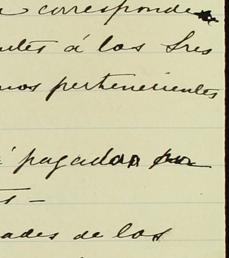 corresponde
ntes á los Sres
nos pertenecientes
pagados por
ts -
ades de los